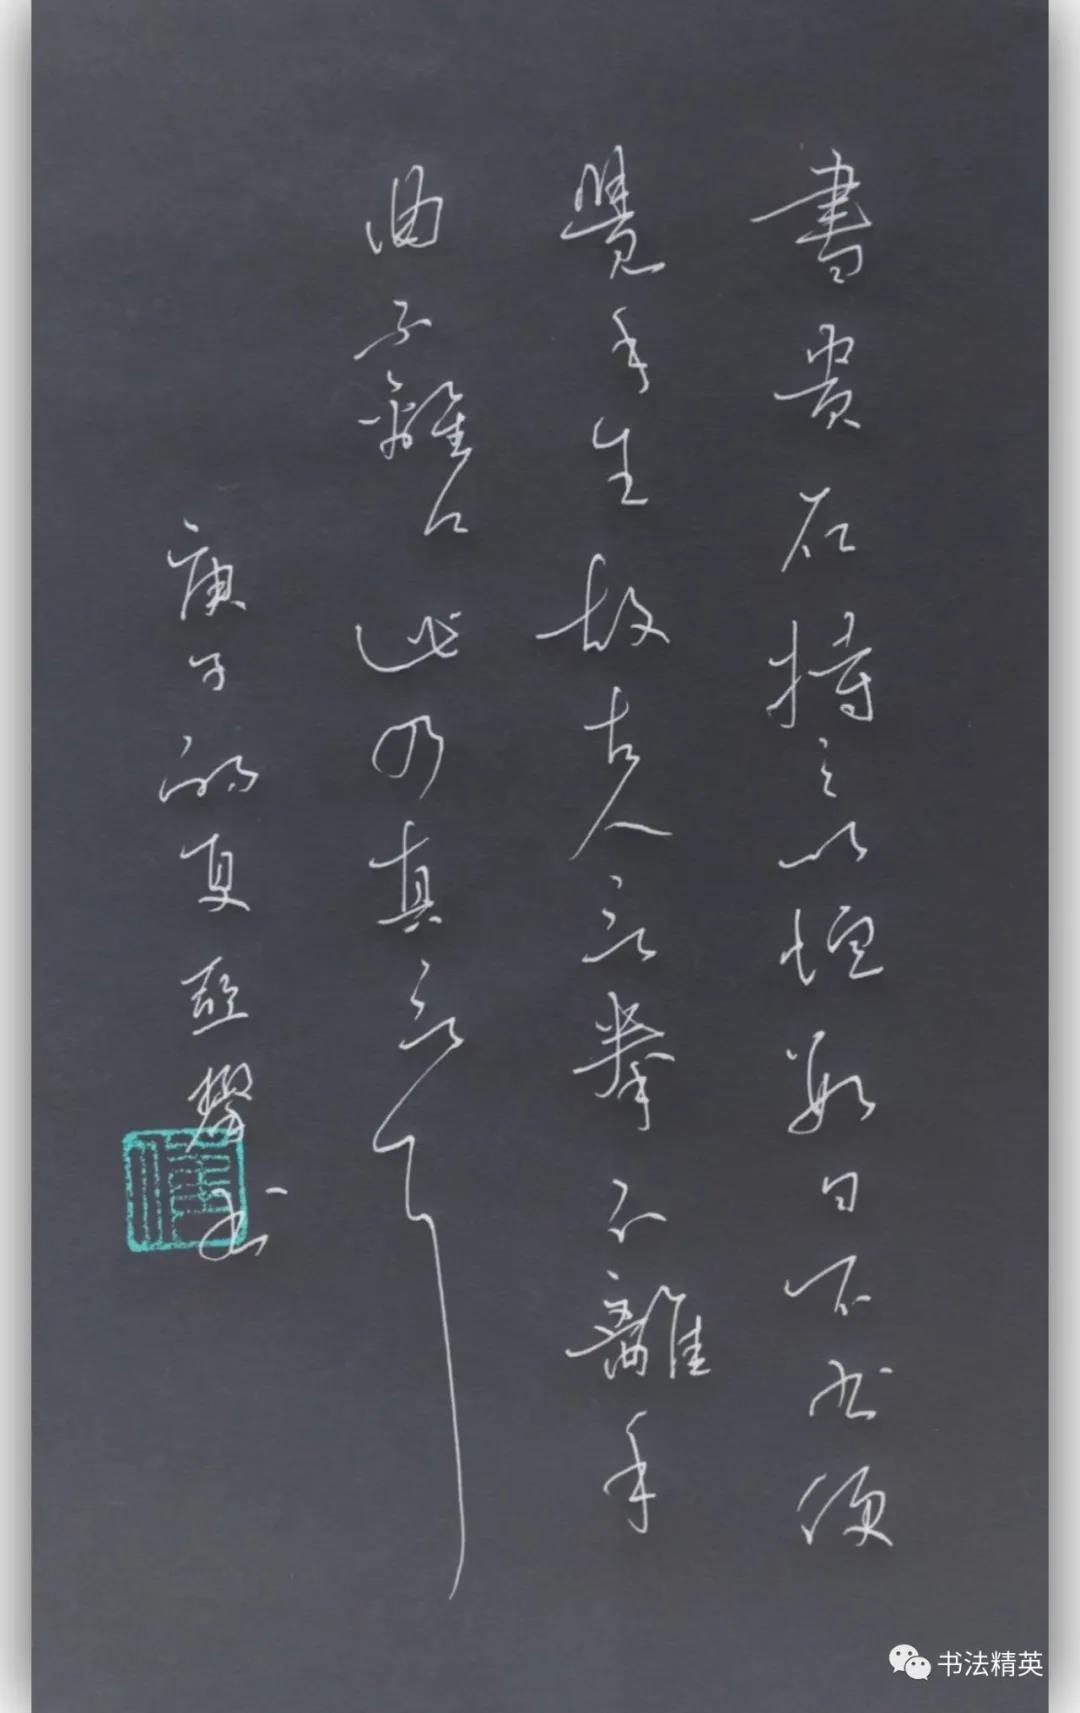 書贵在持之以恒數日不书便
覺手生故古人云拳不離手
曲不離口此乃真言
庚子初夏
书
书法精英